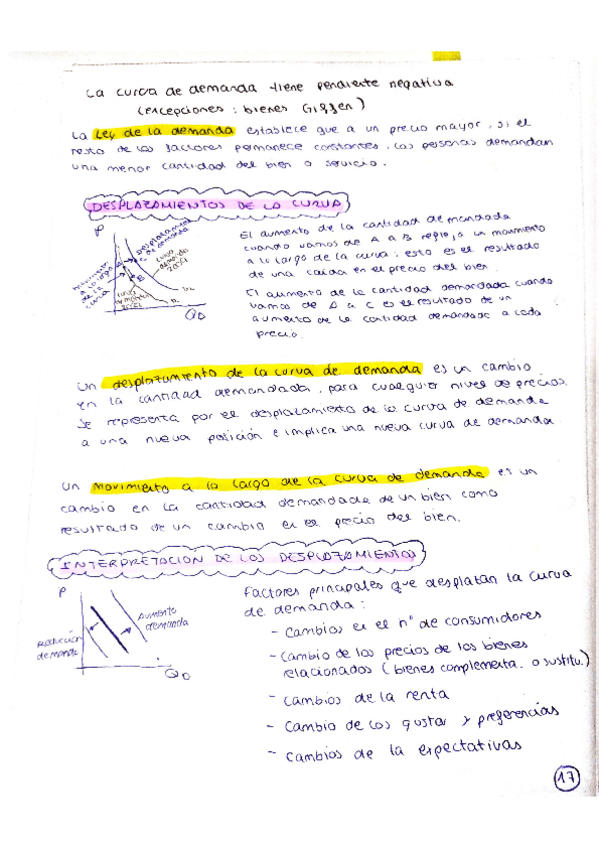 La curva de demanda tiene pendiente negativa
(excepciones: bienes Giffen)
La Ley de la demanda establece que a un precio mayor, si el
resto de los factores permanece constantes, las personas demandan
una menor cantidad del bien o servicio.
DESPLAZAMIENTOS DE LA CURVA
P
Desplazamiento
de demanda
Movimiento
a lo largo
de la
curva
curva
demanda
curva
demanda
QD
El aumento de la cantidad demandada
cuando vamos de A a B refleja un movimiento
a lo largo de la curva: esto es el resultado
de una caída en el precio del bien.
El aumento de la cantidad demandada cuando
vamos de A a C es el resultado de un
aumento de la cantidad demandada a cada
precio.
Un desplazamiento de la curva de demanda es un cambio
en la cantidad demandada, para cualquier nivel de precios.
Se representa por el desplazamiento de la curva de demanda
a una nueva posición e implica una nueva curva de demanda.
Un movimiento a lo largo de la curva de demanda es un
cambio en la cantidad demandada de un bien como
resultado de un cambio en el precio del bien.
INTERPRETACION DE LOS DESPLAZAMIENTOS
P
Aumento
demanda
Reducción
demanda
QD
Factores principales que desplazan la curva
de demanda:
- Cambios en el nº de consumidores
- Cambio de los precios de los bienes
relacionados (bienes complementa. o sustitu.)
- Cambios de la renta
- Cambio de los gustos y preferencias
- Cambios de la expectativas
17